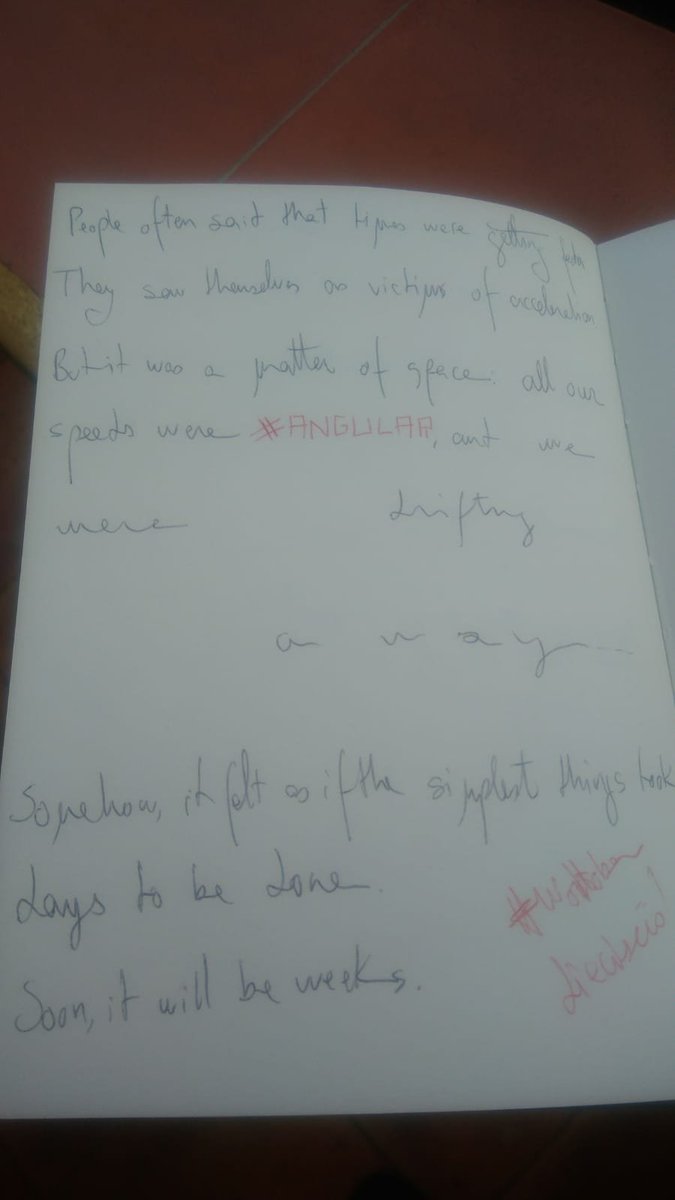 People often said that times were getting
They saw themselves as victims of acceleration
But it was a matter of space: all our
speeds were #ANGULAR, and we
were drifting
a w a y...
Somehow, it felt as if the simplest things took
days to be done.
Soon, it will be weeks.